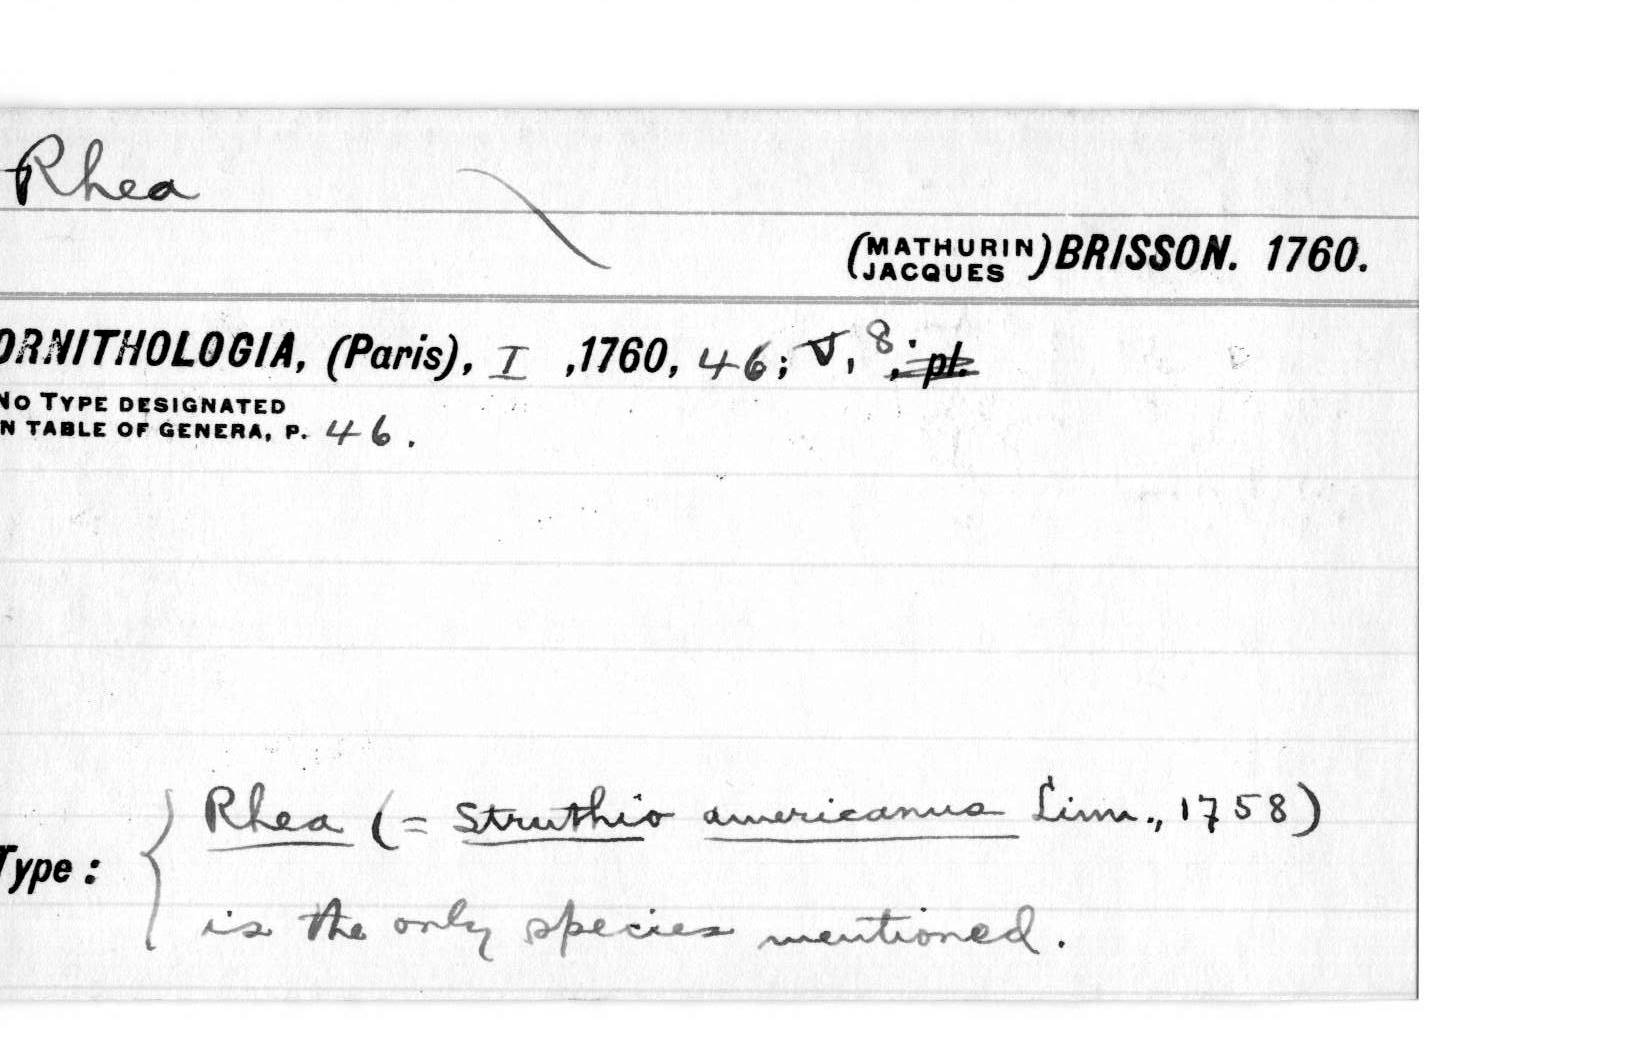 Rhea
(MATHURIN JACQUES) BRISSON. 1760.
ORNITHOLOGIA, (Paris), I ,1760, 46; V, 8. , pl.
No TYPE DESIGNATED
N TABLE OF GENERA, P. 46.
Rhea (= Struthio americanus Linn., 1758)
Type:
is the only species mentioned.